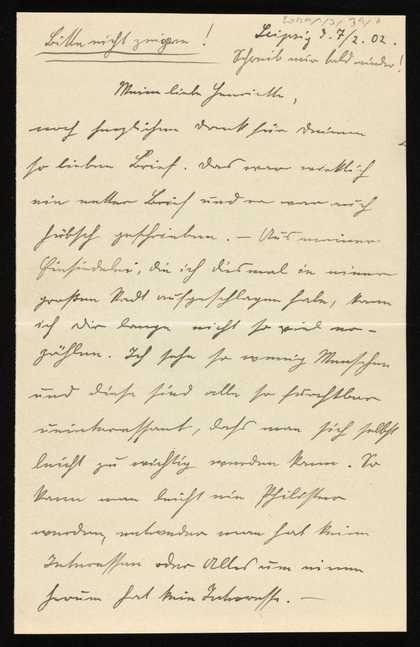 Bitte nicht zeigen!
Leipzig d. 7/2. 02.
Schreib mir bald wieder!
Meine liebe Henriette,
noch herzlichen Dank für Deinen
so lieben Brief. Das war wirklich
ein netter Brief und er war auch
hübsch geschrieben. – Aus meiner
Einsiedelei, die ich diesmal in einer
großen Stadt aufgeschlagen habe, kann
ich Dir lange nicht so viel er-
zählen. Ich sehe so wenig Menschen
und diese sind alle so furchtbar
uninteressant, dass man sich selbst
leicht zu wichtig werden kann. So
kann man leicht ein Philister
werden, entweder man hat keine
Interessen oder Alles um einen
herum hat kein Interesse. –